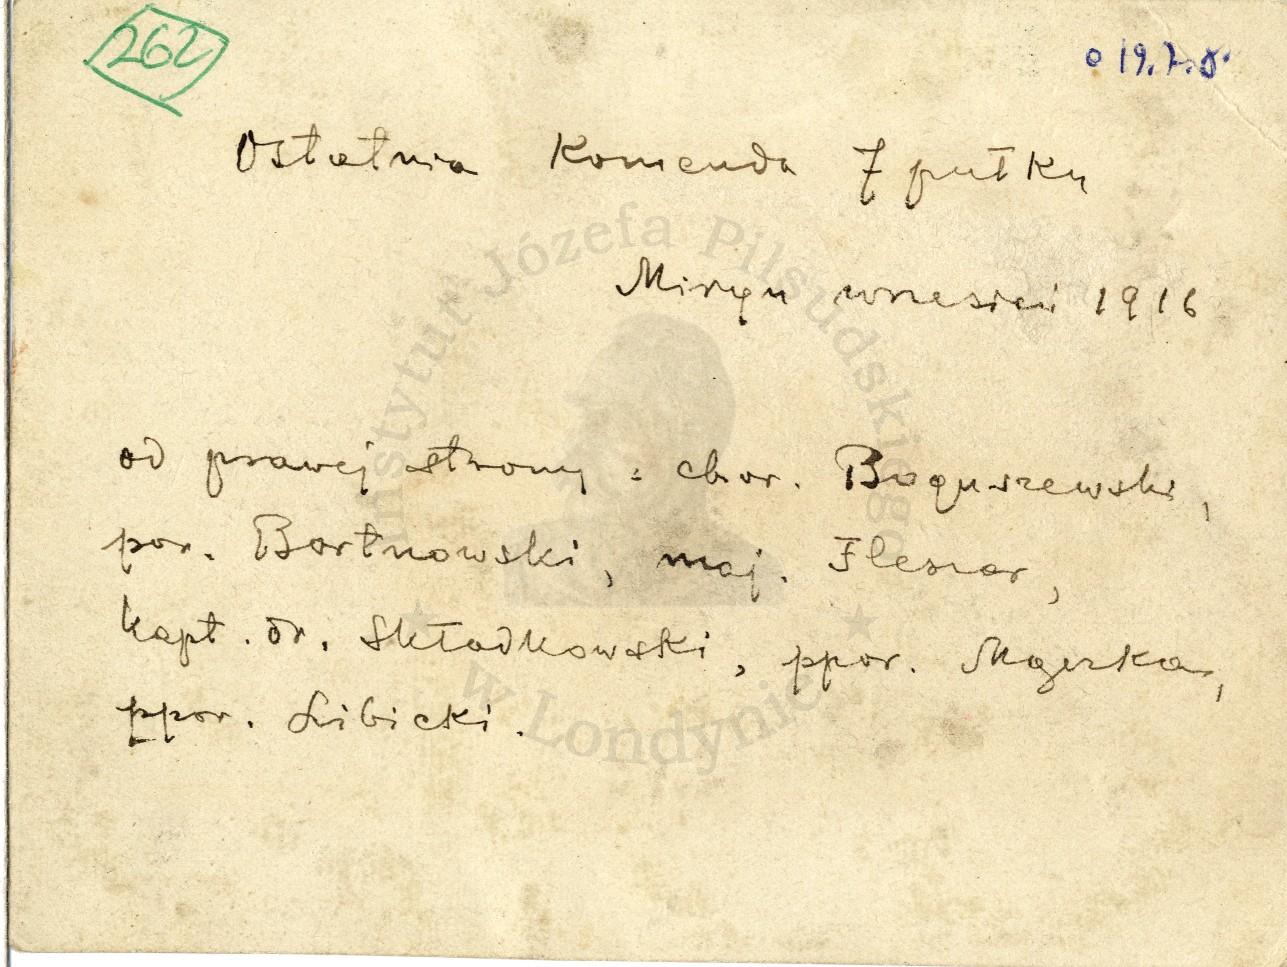 262
o 19.7.8.
Ostatnia Komenda 7 pułku
Miryn wrzesień 1916
od prawej strony : chor. Boguszewski,
por. Bortnowski, maj. Fleszar,
kapt. dr. Składkowski, ppor. Mączka,
ppor. Libicki.
Instytut Józefa Piłsudskiego
w Londynie